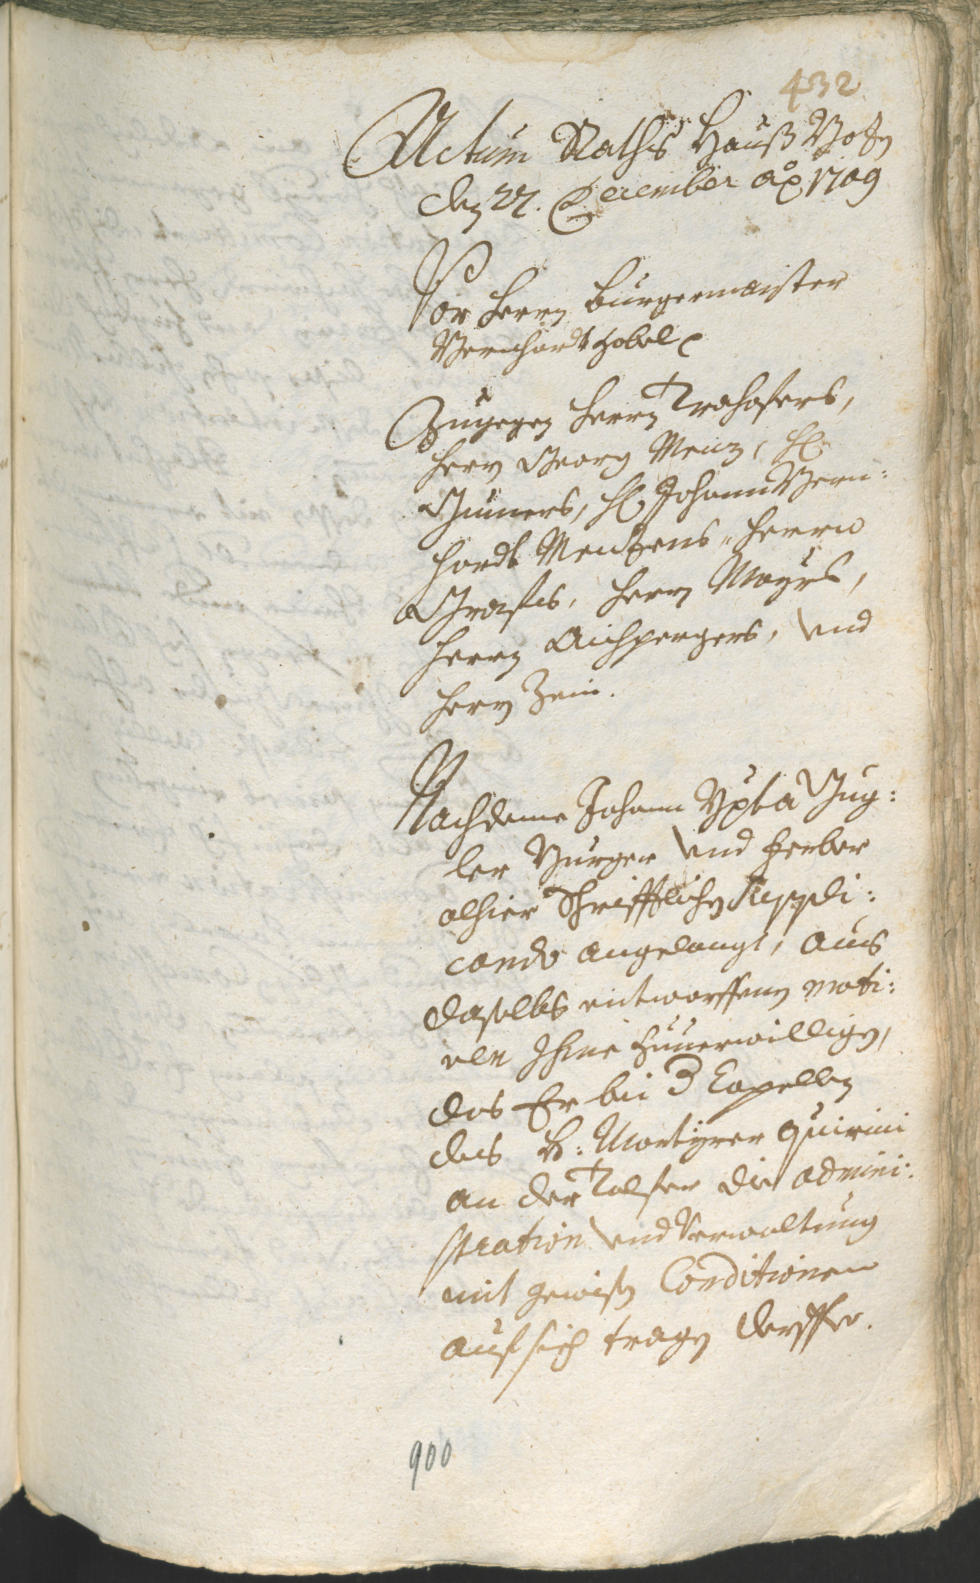 432
Actum Raths Hauß Bozen
den 27. December ao 1709
Vor herrn Burgermaister
Bernhardt Hobel
Zugegen herrn Trahofers,
herrn Georg Menz, H.
Gumers, H. Johann Bern:
hardt Mentzens, herrn
Grafs, herrn Mayrs,
herrn Aichpergers, vnd
herrn Zein.
Nachdeme Johann Bpta Gug:
ler Burger vnd Ferber
alhier Schrifftlichen Suppli:
cando angelangt, aus
daselbs entworffenen moti:
ven Ihme zuuerwilligen,
das Er bei Capellen
des H: Martyrer Quirini
an der Talfer die admini:
stration vnd Verwaltung
mit gewisen Conditionen
auf sich tragen derffe.
900